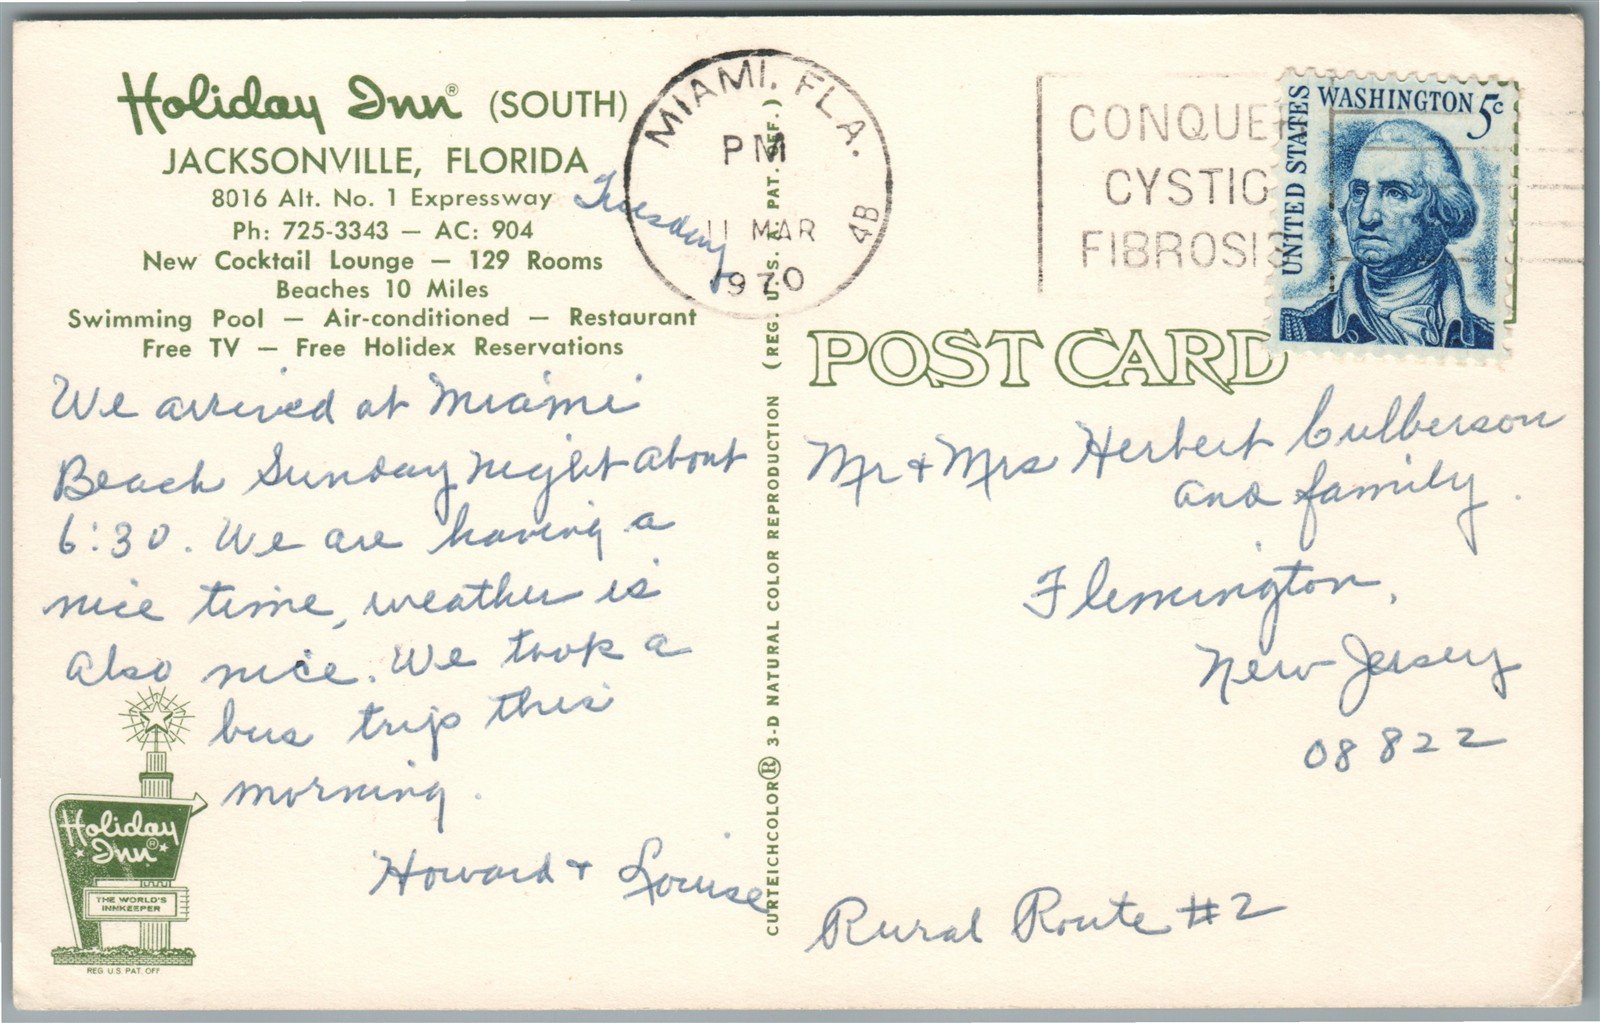 Holiday Inn® (SOUTH)
JACKSONVILLE, FLORIDA
8016 Alt. No. 1 Expressway
Ph: 725-3343 — AC: 904
New Cocktail Lounge — 129 Rooms
Beaches 10 Miles
Swimming Pool — Air-conditioned — Restaurant
Free TV — Free Holidex Reservations
Tuesday
We arrived at Miami
Beach Sunday night about
6:30. We are having a
nice time, weather is
also nice. We took a
bus trip this
morning.
Howard + Louise
Holiday
Inn®
THE WORLD'S
INNKEEPER
REG U.S. PAT. OFF
CURTEICHCOLOR® 3-D NATURAL COLOR REPRODUCTION (REG. U.S. PAT. OFF.)
MIAMI, FLA.
PM
11 MAR
1970
4B
CONQUER
CYSTIC
FIBROSIS
UNITED STATES
WASHINGTON 5c
POST CARD
Mr + Mrs Herbert Culberson
and family.
Flemington,
New Jersey
08822
Rural Route #2